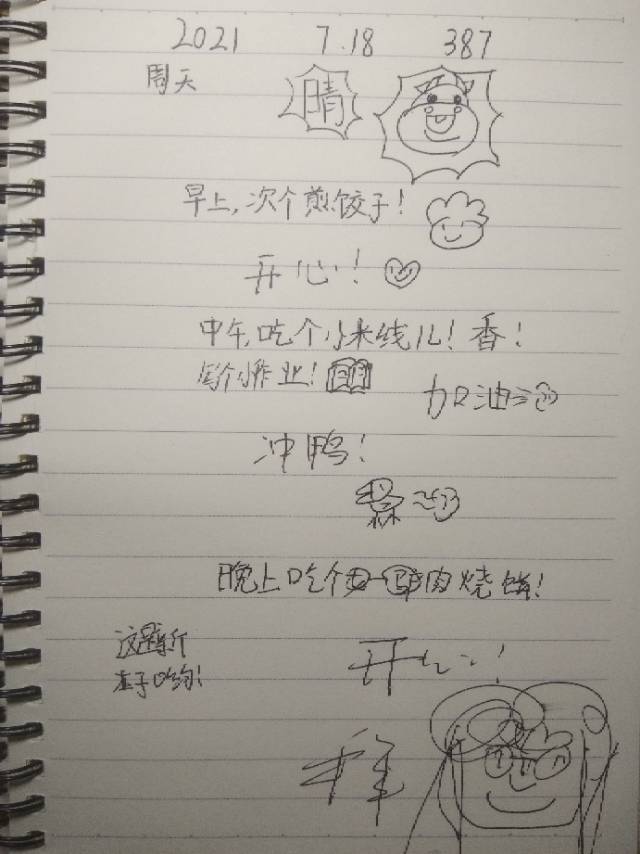 2021 7.18 387
周天 晴
早上,次个煎饺子!
开心!
中午,吃个小米线儿!香!
写个小作业!
加油
冲鸭!
晚上吃个驴肉烧饼!
开心!